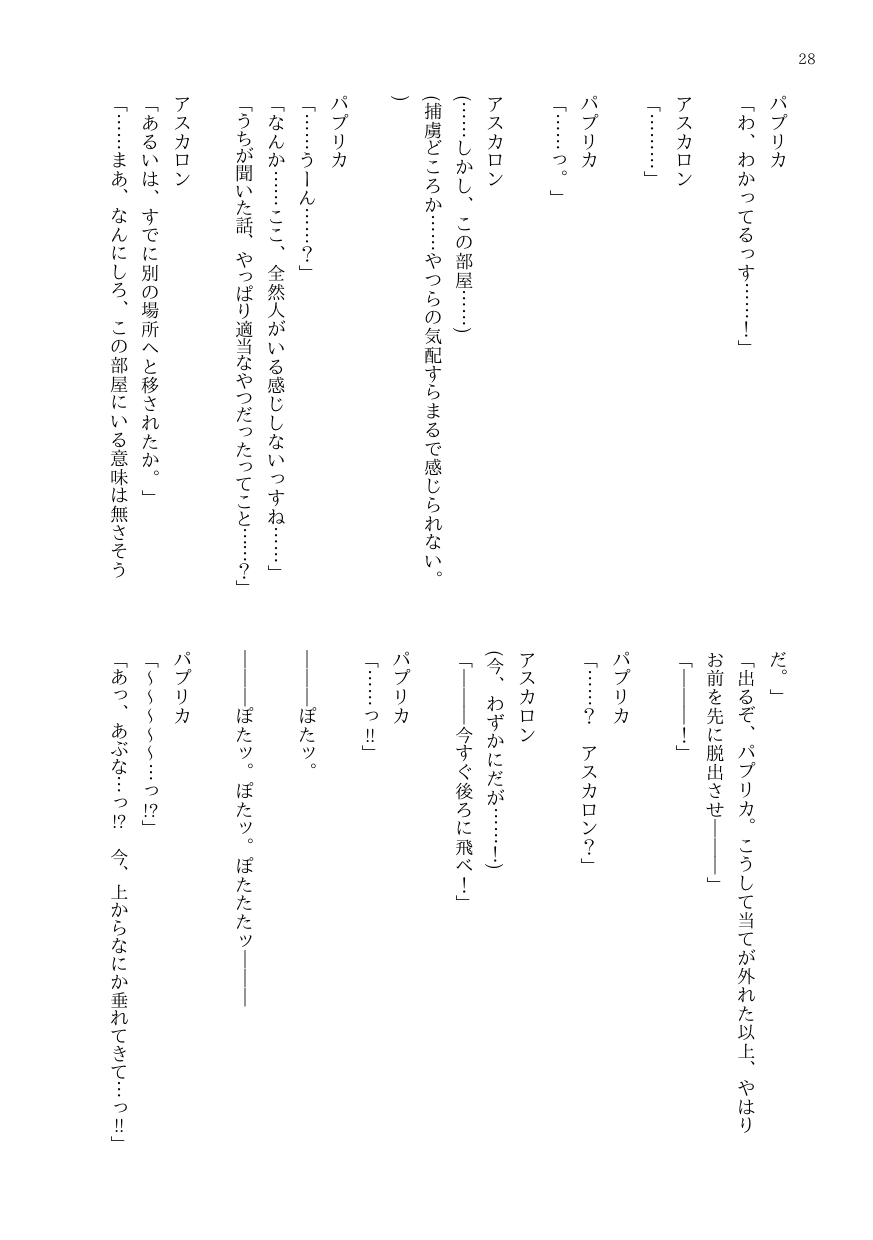 28
パプリカ
「わ、わかってるっす……！」
アスカロン
「………」
パプリカ
「……っ。」
アスカロン
(……しかし、この部屋……)
(捕虜どころか……やつらの気配すらまるで感じられない。
)
パプリカ
「……うーん……？」
「なんか……ここ、全然人がいる感じしないっすね……」
「うちが聞いた話、やっぱり適当なやつだったってこと……？」
アスカロン
「あるいは、すでに別の場所へと移されたか。」
「……まあ、なんにしろ、この部屋にいる意味は無さそう
だ。」
「出るぞ、パプリカ。こうして当てが外れた以上、やはり
お前を先に脱出させ―――」
「―――！」
パプリカ
「……？　アスカロン？」
アスカロン
(今、わずかにだが……！)
「―――今すぐ後ろに飛べ！」
パプリカ
「……っ‼」
―――ぽたッ。
―――ぽたッ。ぽたッ。ぽたたたッ―――
パプリカ
「～～～～～…っ⁉」
「あっ、あぶな…っ⁉　今、上からなにか垂れてきて…っ‼」